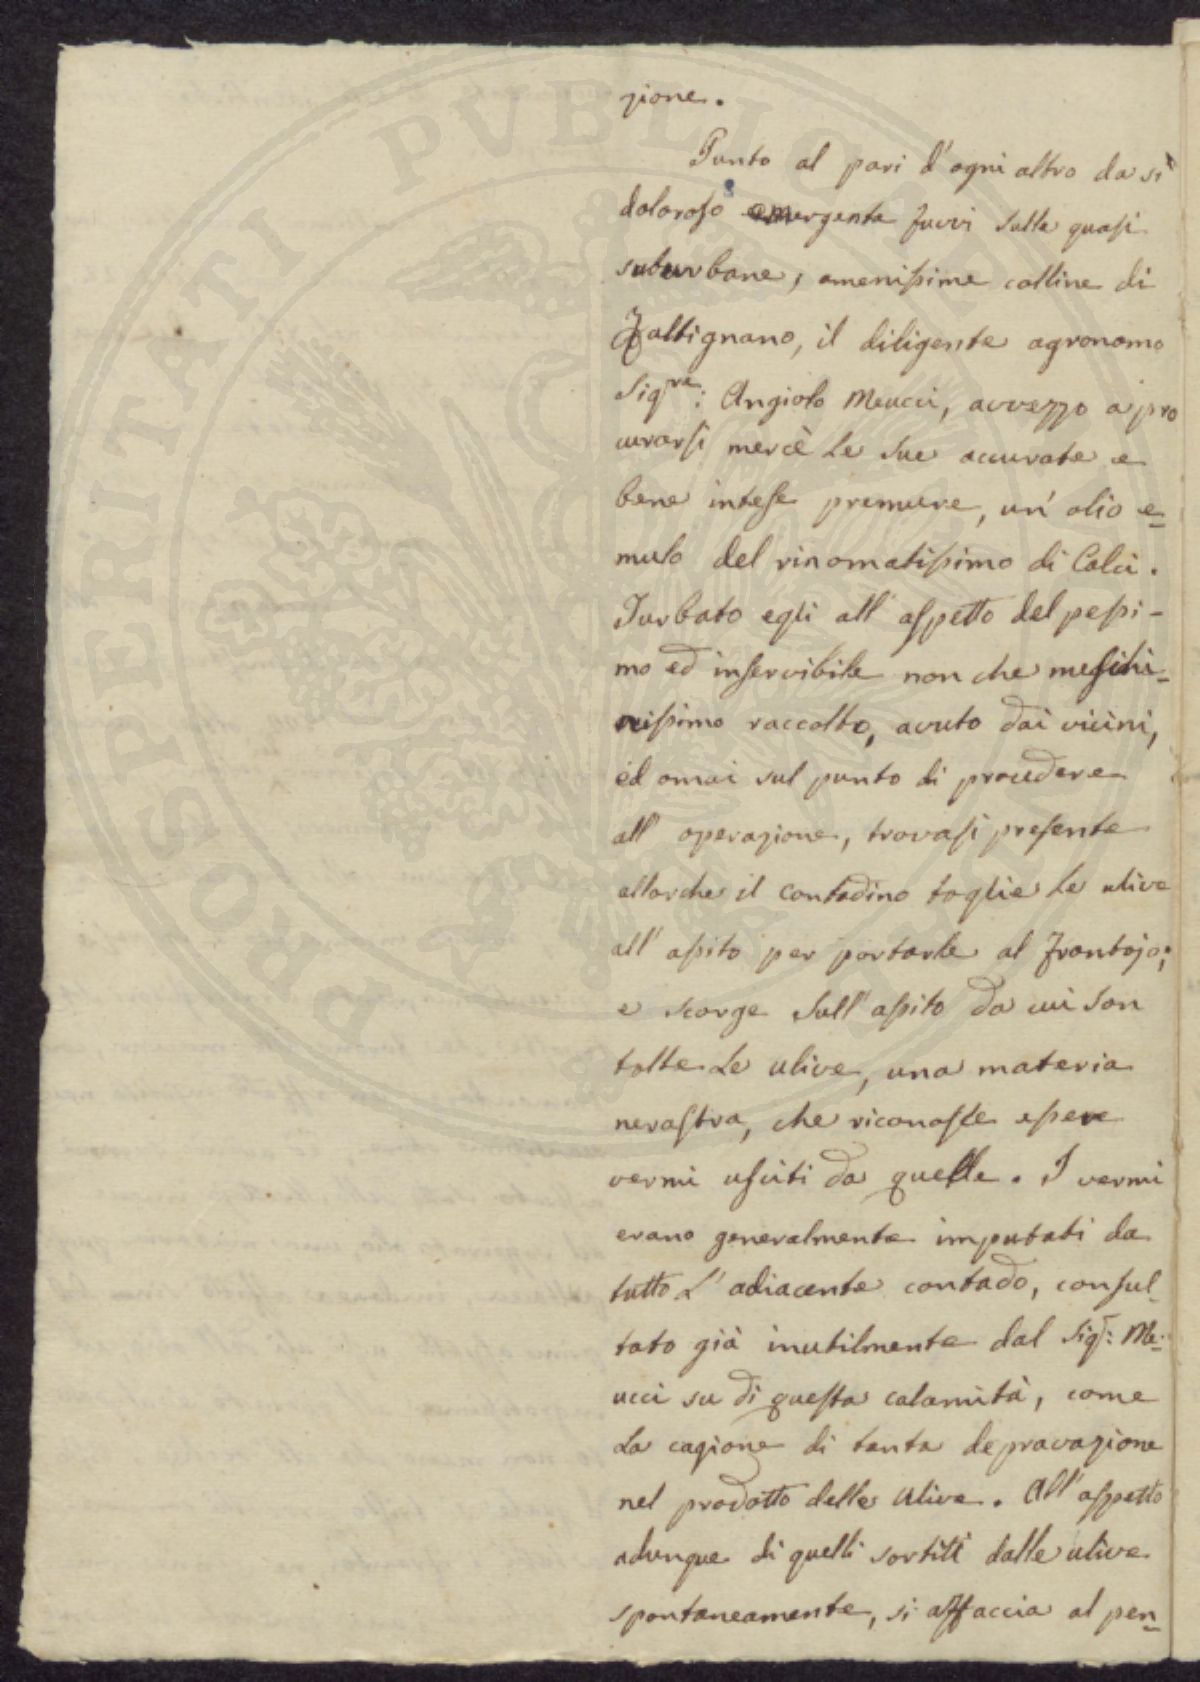 zione.
Punto al pari d'ogni altro da sì
doloroso emergente fuvvi sulle quasi
suburbane, amenissime colline di
Faltignano, il diligente agronomo
Sigre: Angiolo Meucci, avvezzo a pro
curarsi mercè le sue accurate e
bene intese premure, un'olio e=
mulo del rinomatissimo di Calci.
Turbato egli all'aspetto del pessi-
mo ed inservibile non che meschi-
nissimo raccolto, avuto dai vicini,
ed omai sul punto di procedere
all'operazione, trovasi presente
allorche il contadino toglie le ulive
all'assito per portarle al frantojo;
e scorge sull'assito da cui son
tolte le ulive, una materia
nerastra, che riconosce essere
vermi usciti da quelle. I vermi
erano generalmente imputati da
tutto l'adiacente contado, consul-
tato già inutilmente dal Sigr: Me-
ucci su di questa calamità, come
la cagione di tanta depravazione
nel prodotto delle ulive. All'aspetto
adunque di quelli sortiti dalle ulive
spontaneamente, si affaccia al pen=
PROSPERITATI PVBLICAE